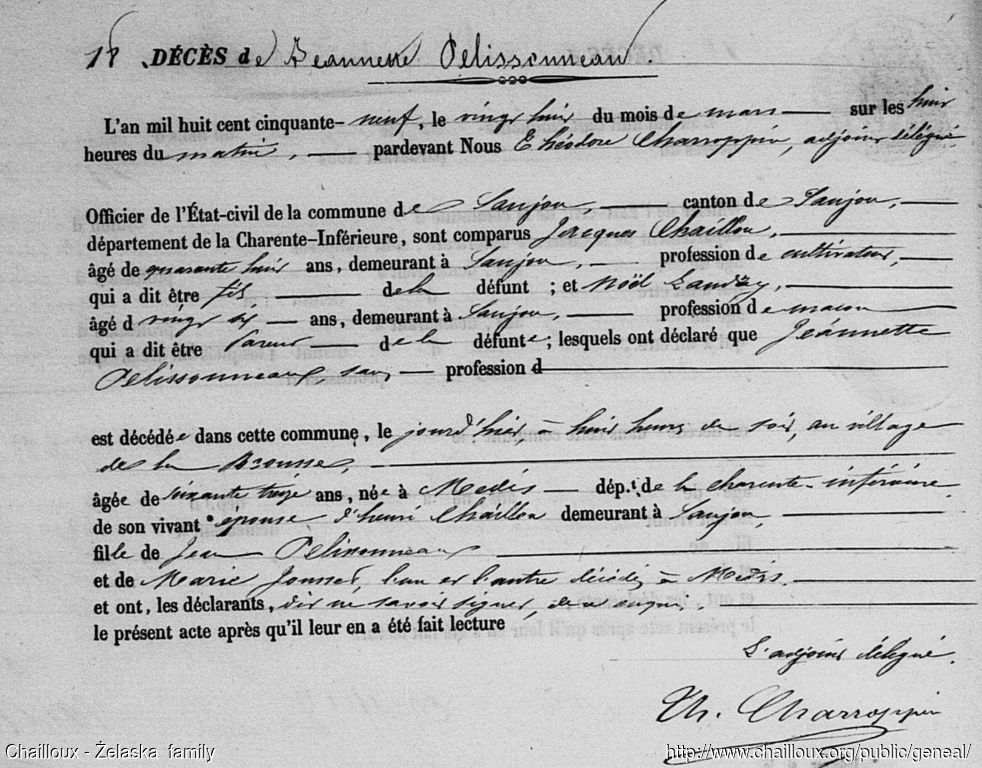 18 DÉCÈS de Jeannette Pelissonneau.
L'an mil huit cent cinquante-neuf, le vingt huit du mois de mars sur les huit
heures du matin, pardevant Nous Théodore Charroppin, adjoint délégué
Officier de l'État-civil de la commune de Saujon, canton de Saujon,
département de la Charente-Inférieure, sont comparus Jacques Chaillou,
âgé de quarante huit ans, demeurant à Saujon, profession de cultivateur,
qui a dit être fils, de la défunt ; et Noël
âgé d vingt six ans, demeurant à Saujon, profession de macon
qui a dit être Parent de la défunte ; lesquels ont déclaré que Jeannette
Pelissonneau, sans profession d
est décédée dans cette commune, le jourd'hier à huit heures du soir, au village
de la Brousse,
âgée de soixante treize ans, née à Médis dép.t de la charente-inférieure
de son vivant épouse d'henri Chaillou demeurant à Saujon,
fille de Jean Pelissonneau
et de Marie Jousset, l'un et l'autre décédés à Médis.
et ont, les déclarants, dit ne savoir signer, de a
le présent acte après qu'il leur en a été fait lecture
L'adjoint délégué.
Th. Charroppin
Chailloux - Żelaska family http://www.chailloux.org/public/geneal/